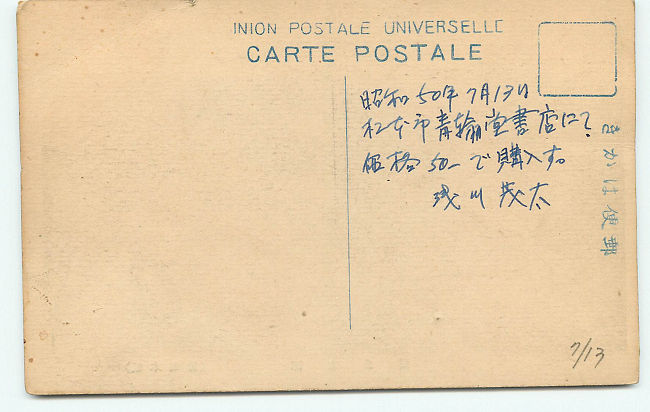 INION POSTALE UNIVERSELLE
CARTE POSTALE
昭和50年7月13日
松本市青翰堂書店にて
価格50ーで購入す。
浅川茂太
きかは便郵
7/13